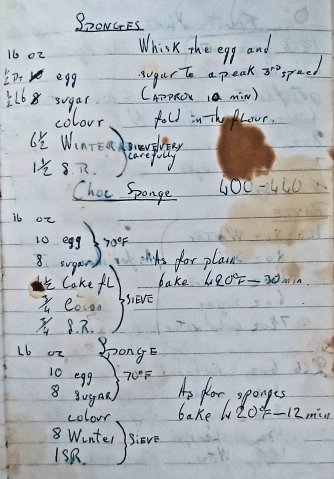 SPONGES
lb oz Whisk the egg and
½ Pt 10 egg sugar to a peak 3rd speed
½ Lb 8 sugar (APPROX 10 min)
colour fold in the flour.
6½ WINTER SIEVE VERY
1½ S.R. carefully
Choc Sponge 400-440
lb oz
10 egg 70°F
8 sugar As for plain
½ Cake fL bake 420°F-30 min.
¾ Cocoa SIEVE
¾ S.R.
Lb oz SPONGE
10 egg 70°F
8 SUGAR As for sponges
colour bake 420°F-12 min
8 Winter SIEVE
1 SR.